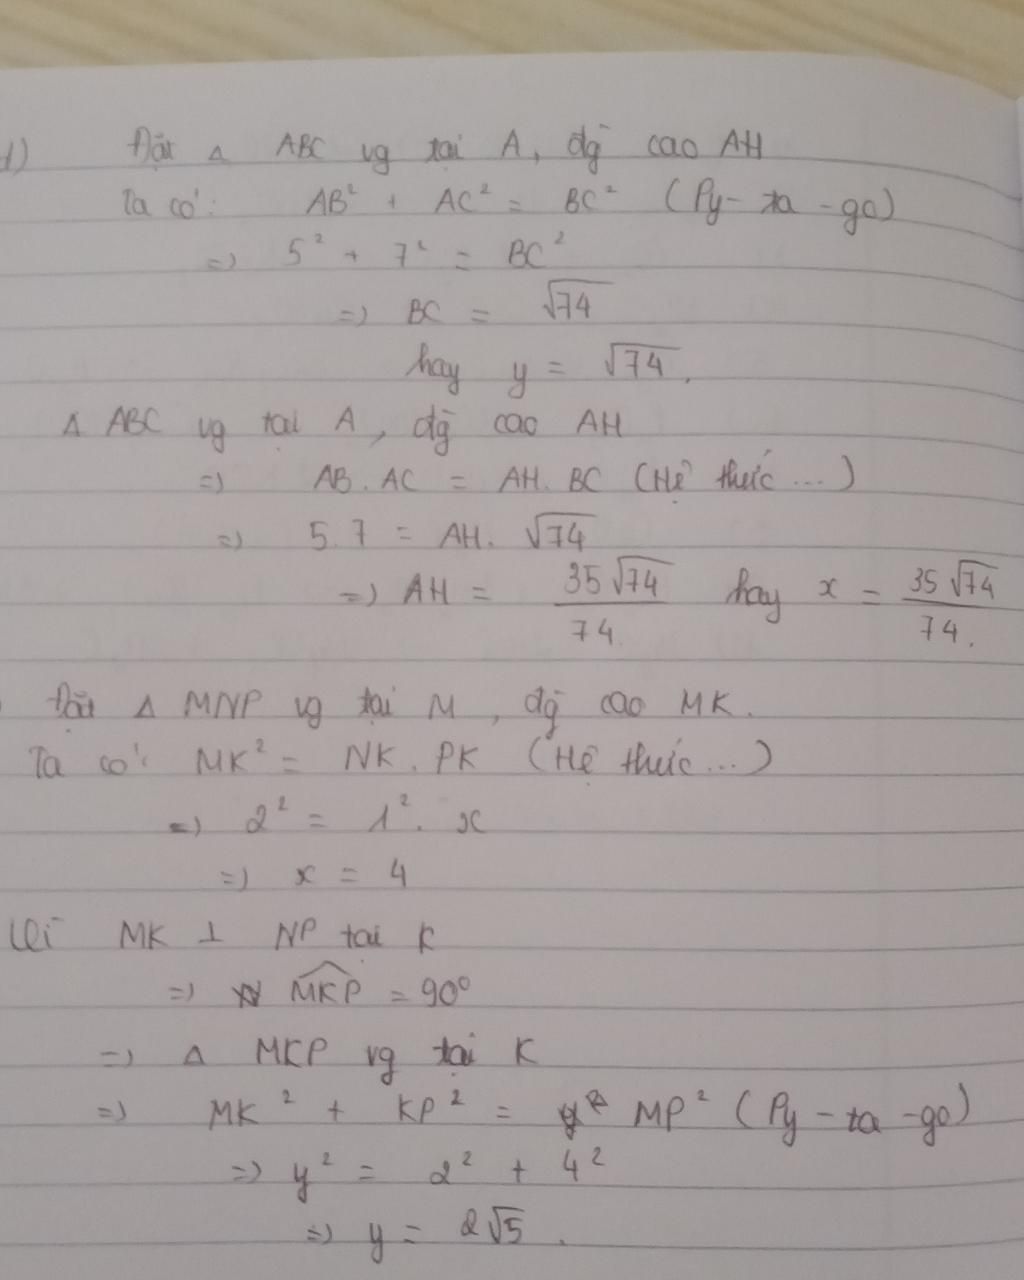 1) Đặt Δ ABC vg tại A, đg cao AH
Ta có: AB² + AC² = BC² (Py-ta-go)
=> 5² + 7² = BC²
=> BC = √74
hay y = √74.
Δ ABC vg tại A, đg cao AH
=> AB . AC = AH. BC (Hệ thức ...)
=> 5.7 = AH. √74
=> AH = 35√74/74. hay x = 35√74/74.
Đặt Δ MNP vg tại M, đg cao MK.
Ta có: MK² = NK . PK (Hệ thức...)
=> 2² = 1² . x
=> x = 4
Vì MK ⊥ NP tại K
=> MKP = 90°
=> Δ MKP vg tại K
=> MK² + KP² = MP² (Py-ta-go)
=> y² = 2² + 4²
=> y = 2√5.